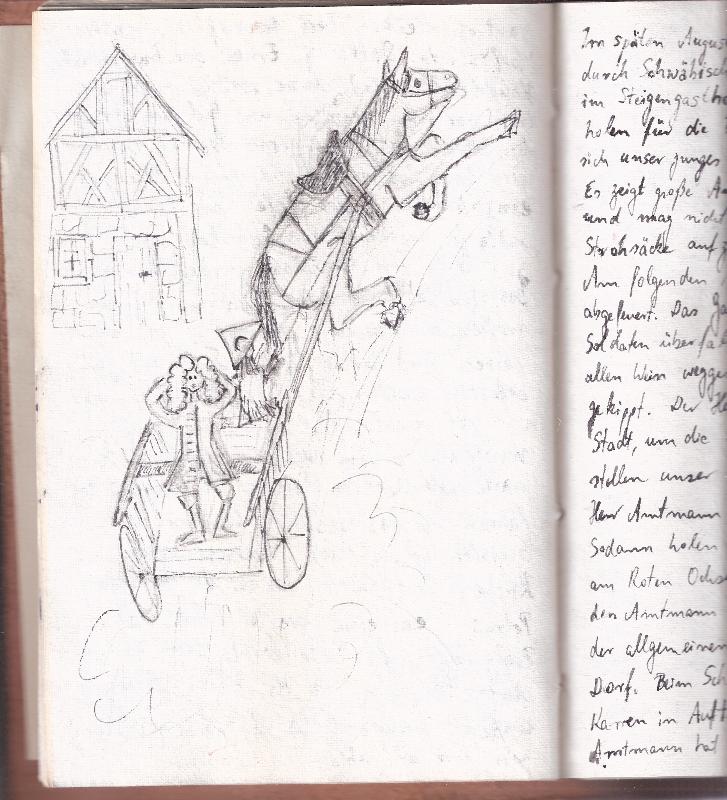 Im späten August
durch Schwäbisch
im Steigengasthof
holen für die
sich unser junges
Es zeigt große A
und mag nicht
Strohsäcke auf
Am folgenden
abgefeuert. Das ga
Soldaten überfal
allen Wein wegge
gekippt. Der H
Stadt, um die
stellen unser
Herr Amtmann
Sodann holen
am Roten Ochs
den Amtmann
der allgemeinen
Dorf. Beim Sch
Karren in Auft
Amtmann hat